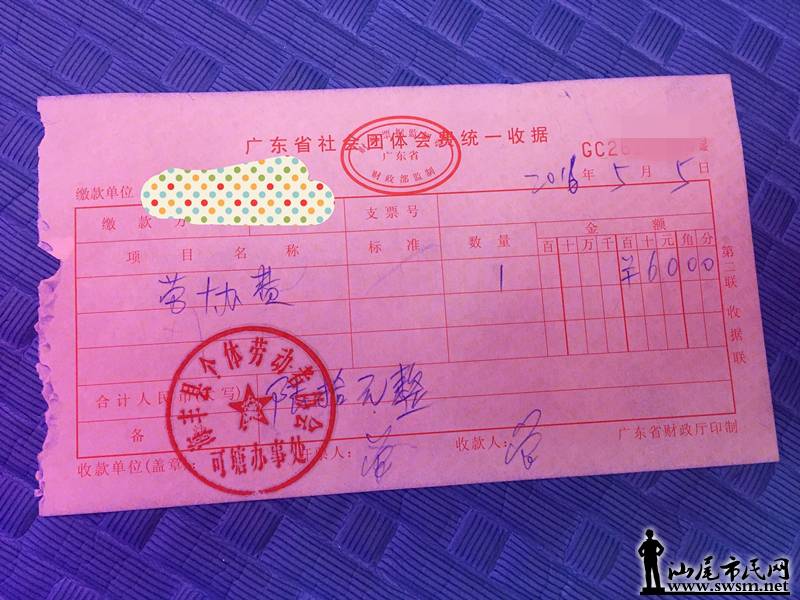 广东省社会团体会费统一收据
广东省
财政部监制
GC26
缴款单位
2016年5月5日
缴款方
支票号
项目名称
标准
数量
金额
百十万千百十元角分
劳协费
1
¥6000
第二联 收据联
合计人民币
写)
陆拾元整
备
海丰县个体劳动者协会
可塘办事处
收款单位(盖章):
票人:
收款人:
广东省财政厅印制
汕尾市民网
www.swsm.net